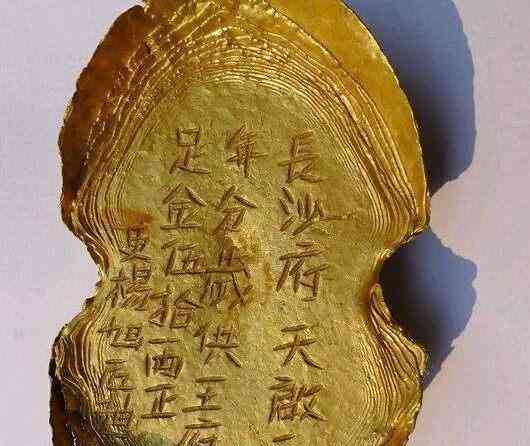 長沙府天啟
年分歲供王府
足金伍拾両正
吏楊旭匠